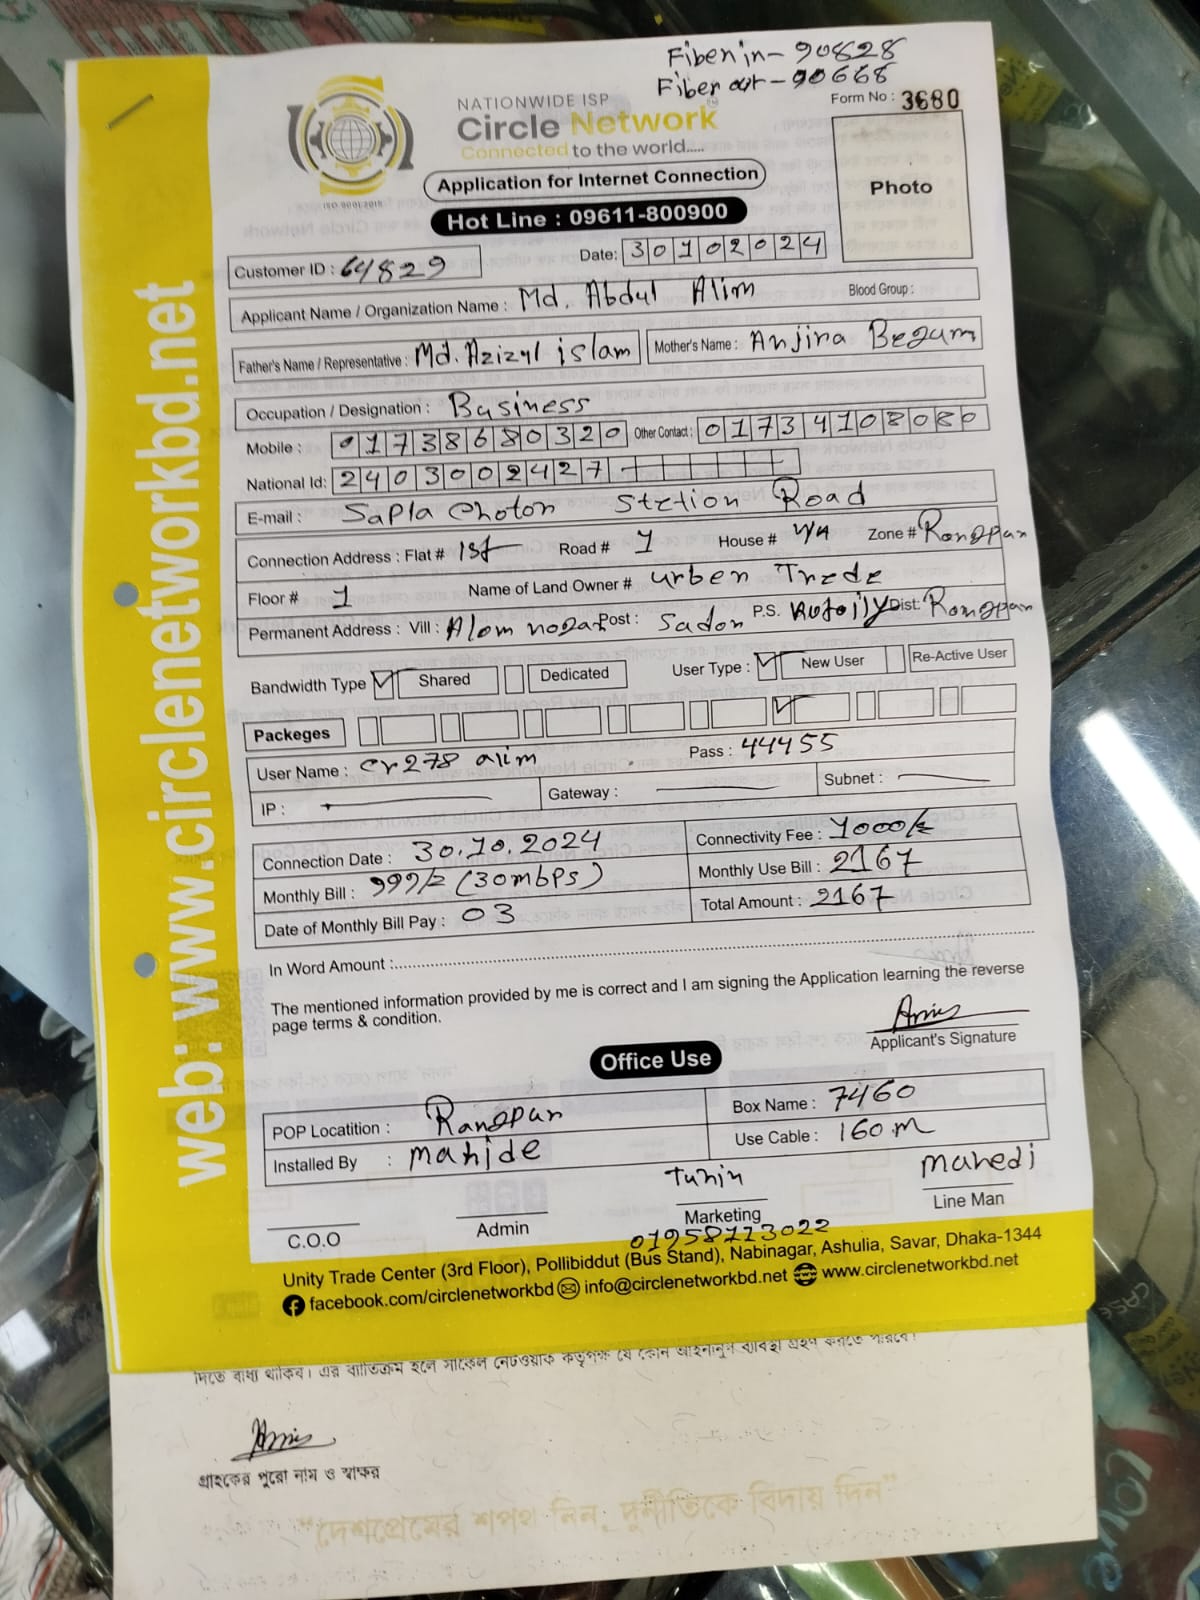 Fiber in- 90828
Fiber out - 90668
Form No : 3680
NATIONWIDE ISP
Circle Network
Connected to the world.....
ISO 9001:2015
Application for Internet Connection
Photo
Hot Line : 09611-800900
Customer ID : 64829
Date: 30102024
Applicant Name / Organization Name : Md. Abdul Alim
Blood Group :
Father's Name / Representative : Md. Azizul islam
Mother's Name : Anjira Begum
Occupation / Designation : Business
Mobile : 01738680320 Other Contact : 01734108080
National Id: 2403002427
E-mail : Sapla Choton Station Road
Connection Address : Flat # 1st Road # 1 House # N/A Zone # Rongpan
Floor # 1 Name of Land Owner # urben Trede
Permanent Address : Vill : Alom nogar Post : Sadon P.S. Dist: Rongpan
Bandwidth Type Shared Dedicated User Type : New User Re-Active User
Packeges
User Name : cr278 alim Pass : 44455
IP : Gateway : Subnet :
Connection Date : 30.10.2024 Connectivity Fee : 1000/=
Monthly Bill : 999/= (30mbps) Monthly Use Bill : 2167
Date of Monthly Bill Pay : 03 Total Amount : 2167
In Word Amount :
The mentioned information provided by me is correct and I am signing the Application learning the reverse
page terms & condition.
Applicant's Signature
Office Use
POP Locatition : Rangpur Box Name : 7460
Installed By : Mahide Use Cable : 160 m
Tuhin Mahedi
C.O.O Admin Marketing Line Man
01958113022
Unity Trade Center (3rd Floor), Pollibiddut (Bus Stand), Nabinagar, Ashulia, Savar, Dhaka-1344
facebook.com/circlenetworkbd info@circlenetworkbd.net www.circlenetworkbd.net
web: www.circlenetworkbd.net
দিতে বাধ্য থাকিব। এর ব্যতিক্রম হলে সার্কেল নেটওয়ার্ক কর্তৃপক্ষ যে কোন আইনানুগ ব্যবস্থা গ্রহণ করতে পারবে।
গ্রাহকের পুরো নাম ও স্বাক্ষর
"দেশপ্রেমের শপথ নিন, দুর্নীতিকে বিদায় দিন"